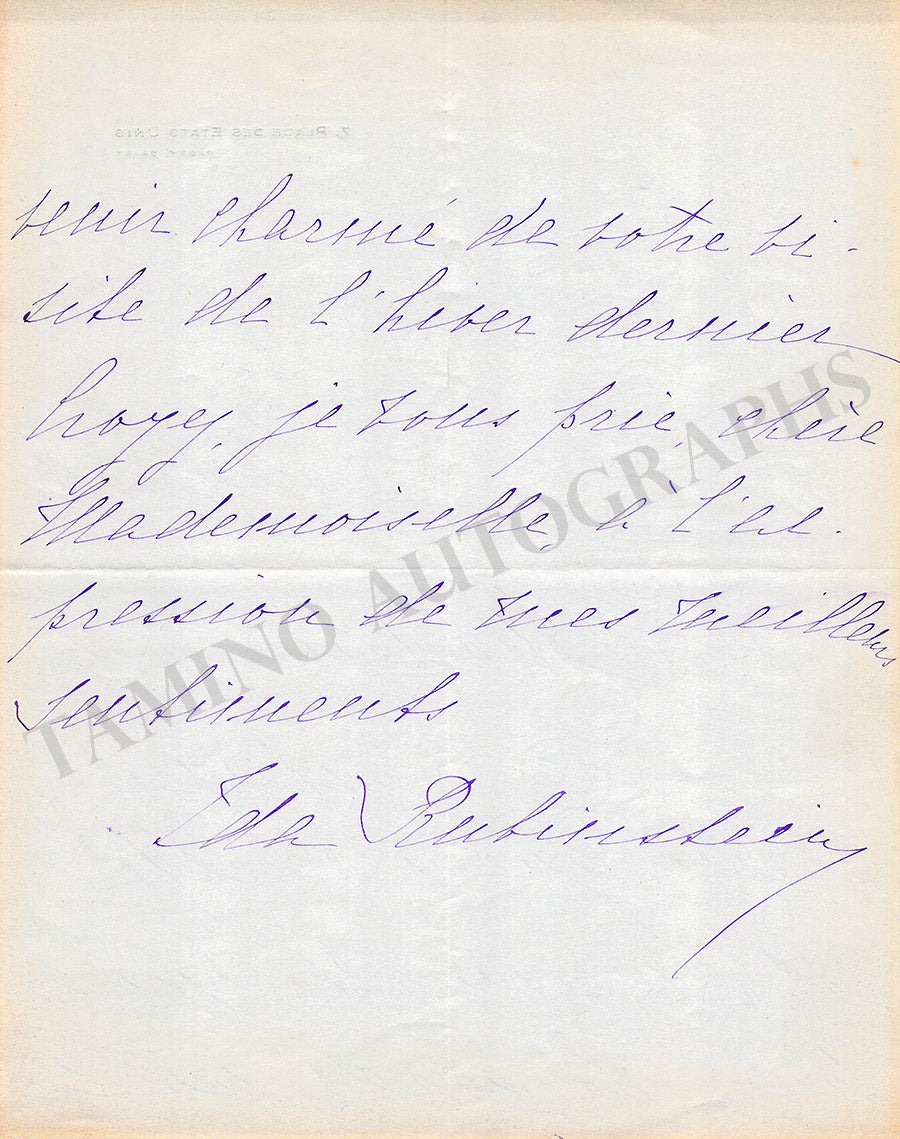 7, PLACE DES ETATS UNIS
venir charmé de votre vi-
site de l'hiver dernier
Croyez, je vous prie, chère
Mademoiselle, à l'ex-
pression de mes meilleurs
sentiments
Ida Rubinstein
TAMINO AUTOGRAPHS